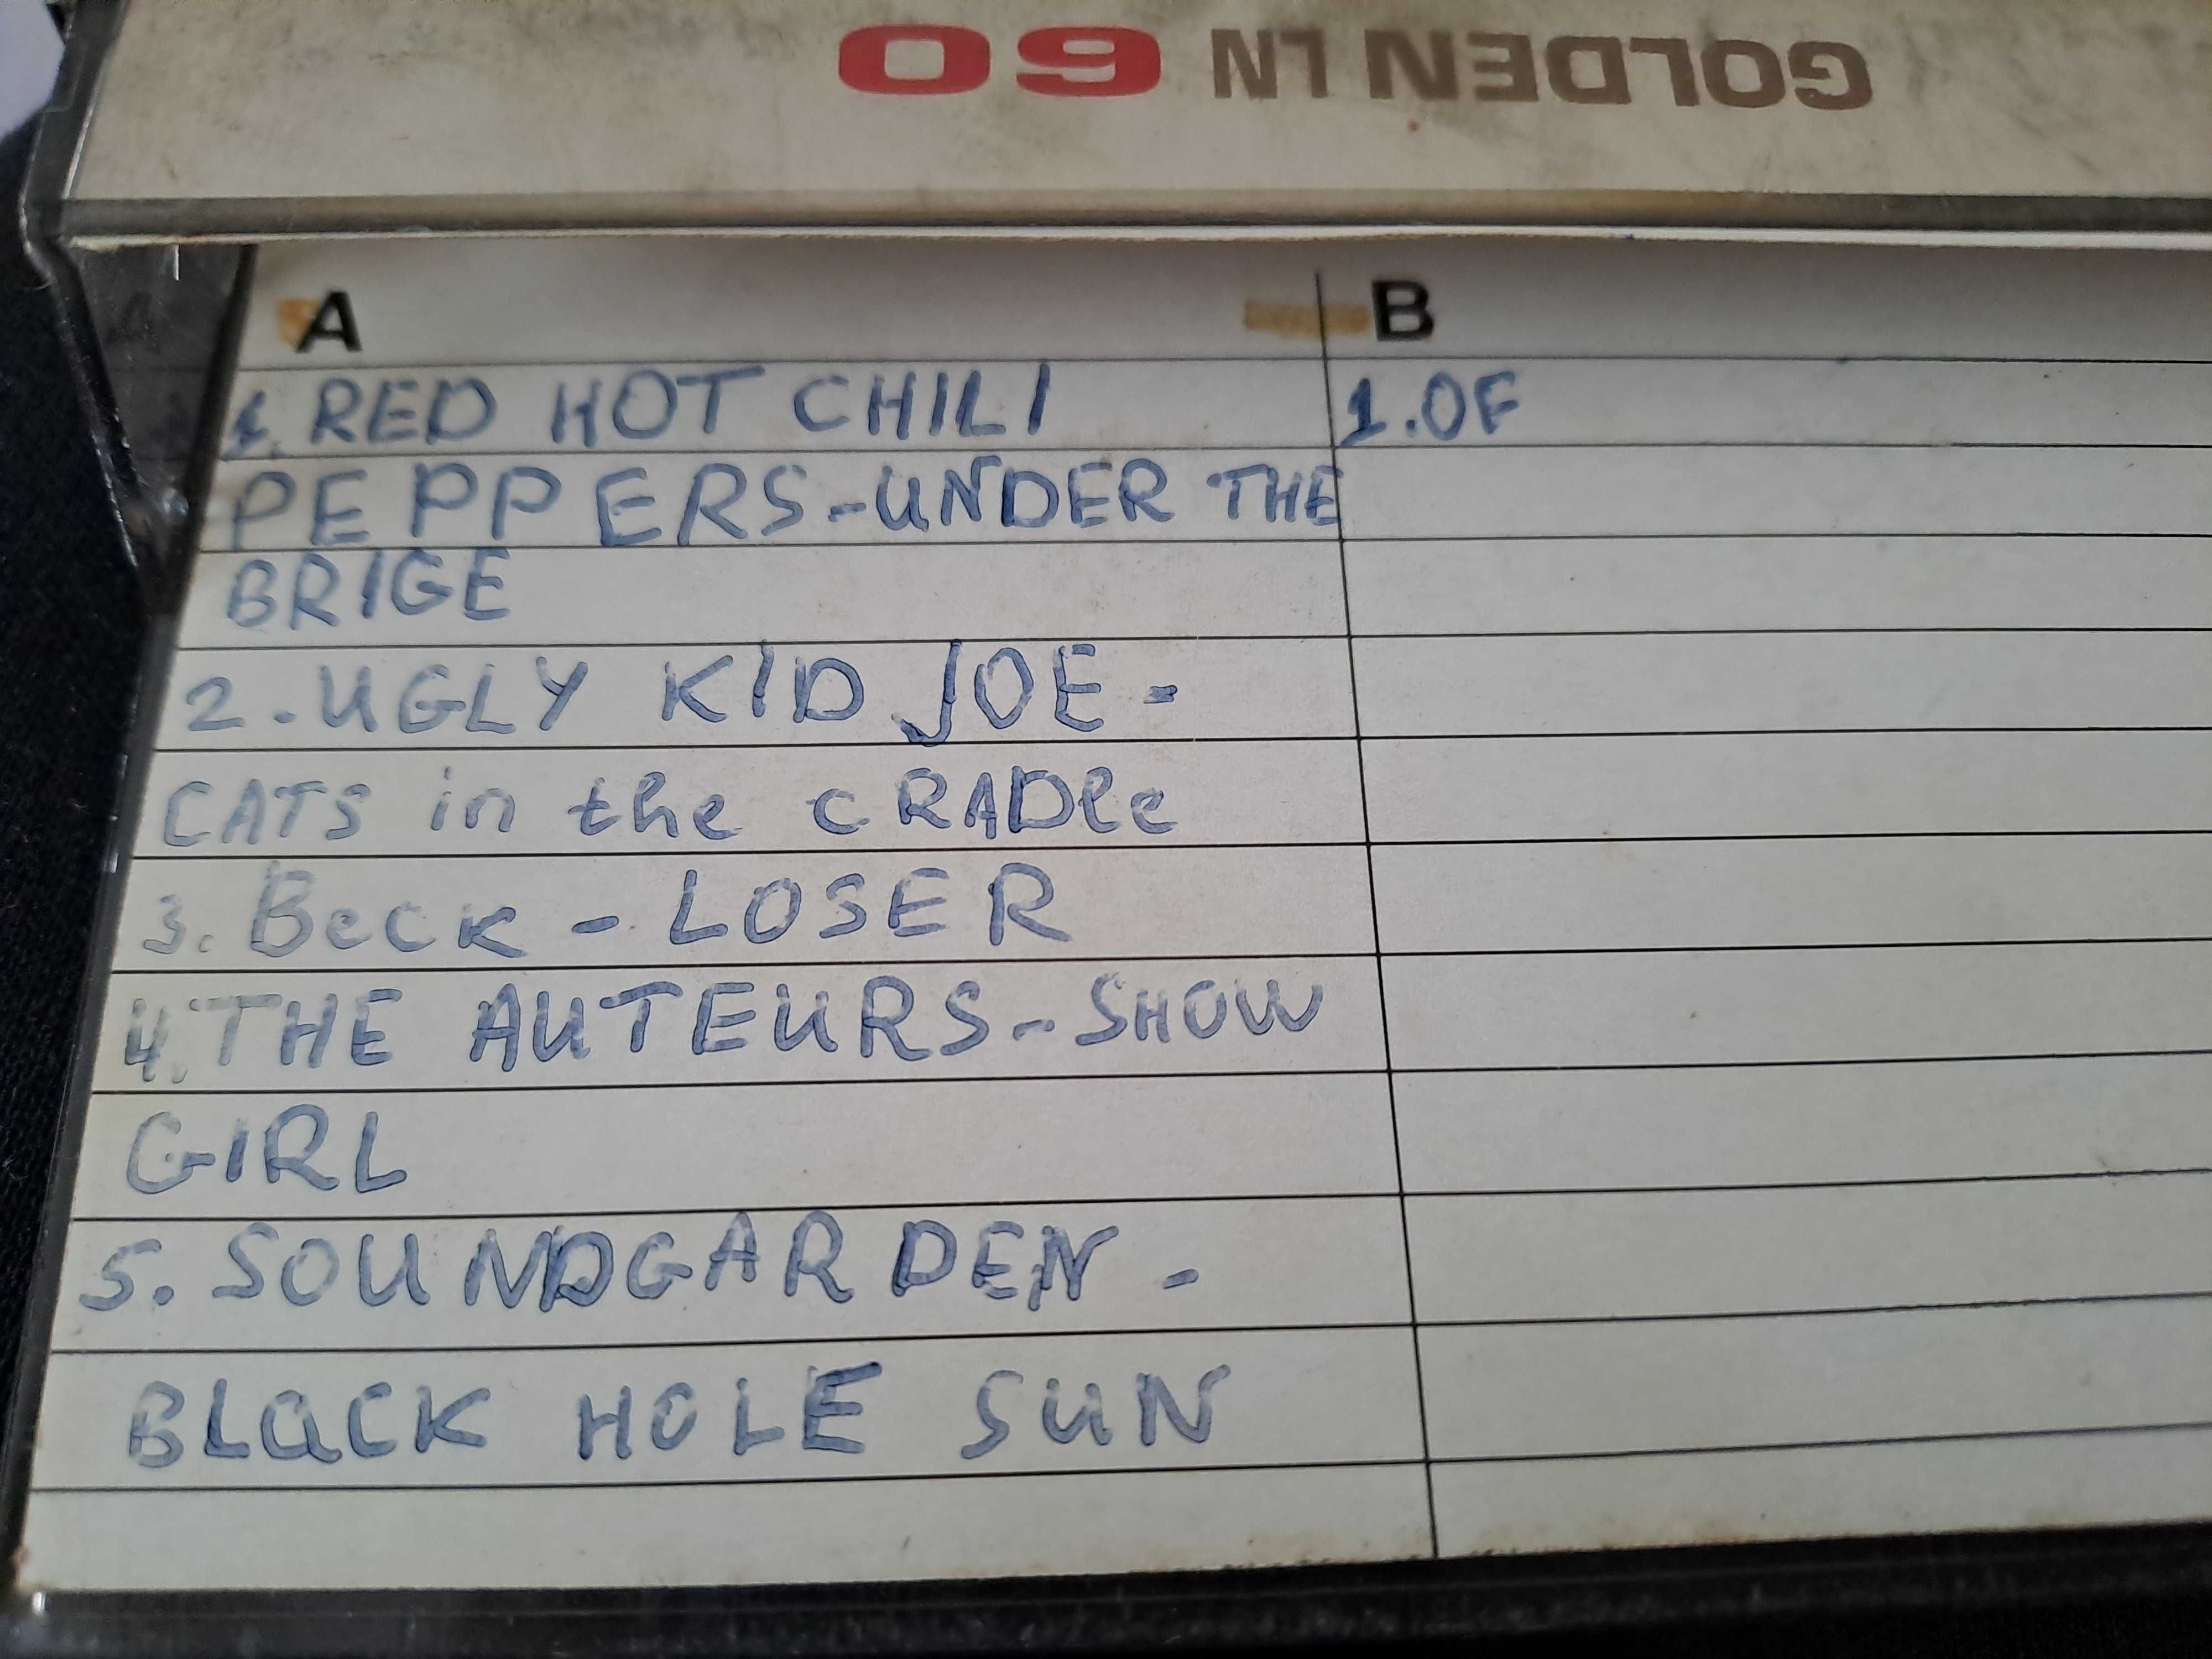 GOLDEN LN 60
A B
1. RED HOT CHILI
PEPPERS-UNDER THE
BRIGE
2. UGLY KID JOE -
CATS in the CRADle
3. Beck - LOSER
4. THE AUTEURS - SHOW
GIRL
5. SOUNDGARDEN -
BLaCK HOLE SUN
1. OF